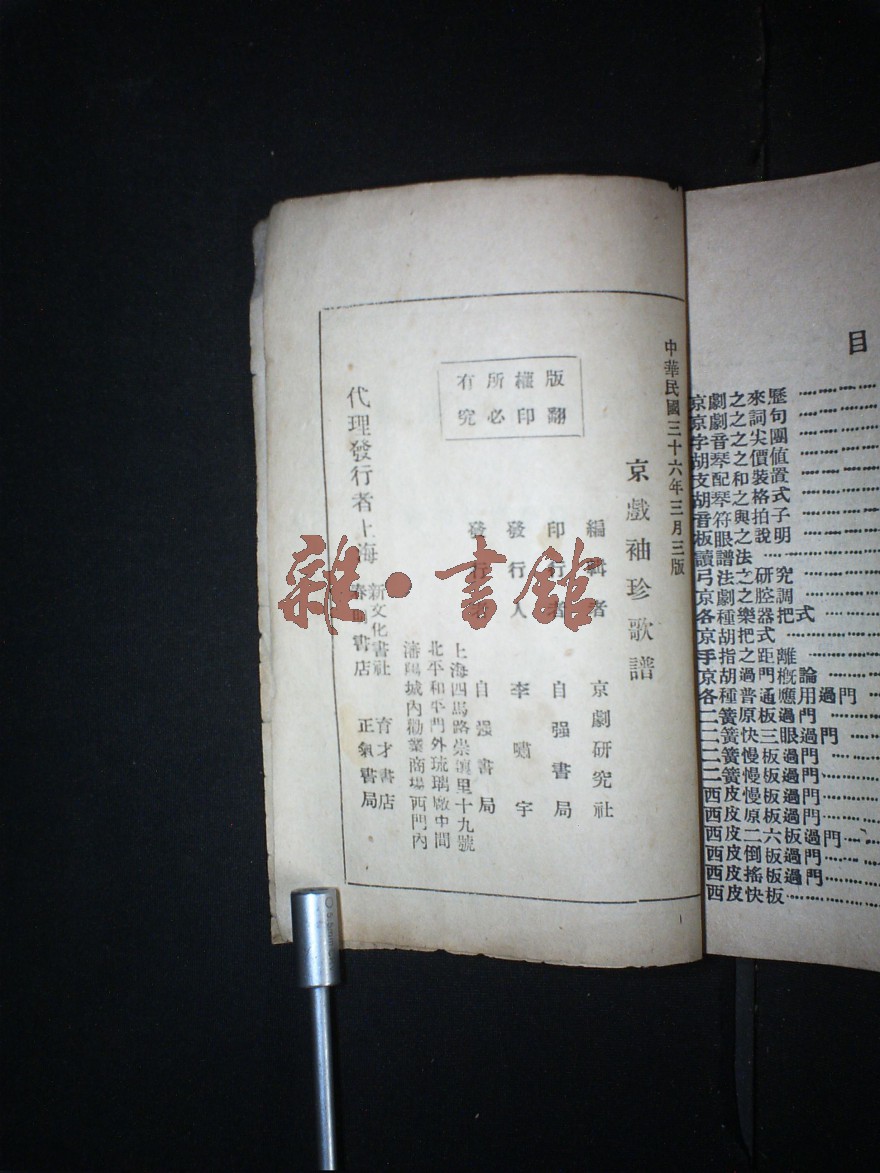 中華民國三十六年三月三版
京戲袖珍歌譜
編輯者 京劇研究社
印行者 自强書局
發行人 李嘯宇
發行 自强書局
上海四馬路崇讓里十九號
北平和平門外琉璃廠中間
瀋陽城內勸業商場西門內
版權所有
翻印必究
代理發行者上海
新文化書社 育才書店
春明書店 正氣書局
雜·書館
目
京劇之來歷
京劇之詞句
字音之尖團
胡琴之價值
支配和裝置
胡琴之格式
音符與拍子
板眼之說明
讀譜法
弓法之研究
京劇之腔調
各種樂器把式
京胡把式
手指之距離
京胡過門概論
各種普通應用過門
二簧原板過門
二簧快三眼過門
二簧慢板過門
二簧慢板過門
西皮慢板過門
西皮原板過門
西皮二六板過門
西皮倒板過門
西皮搖板過門
西皮快板